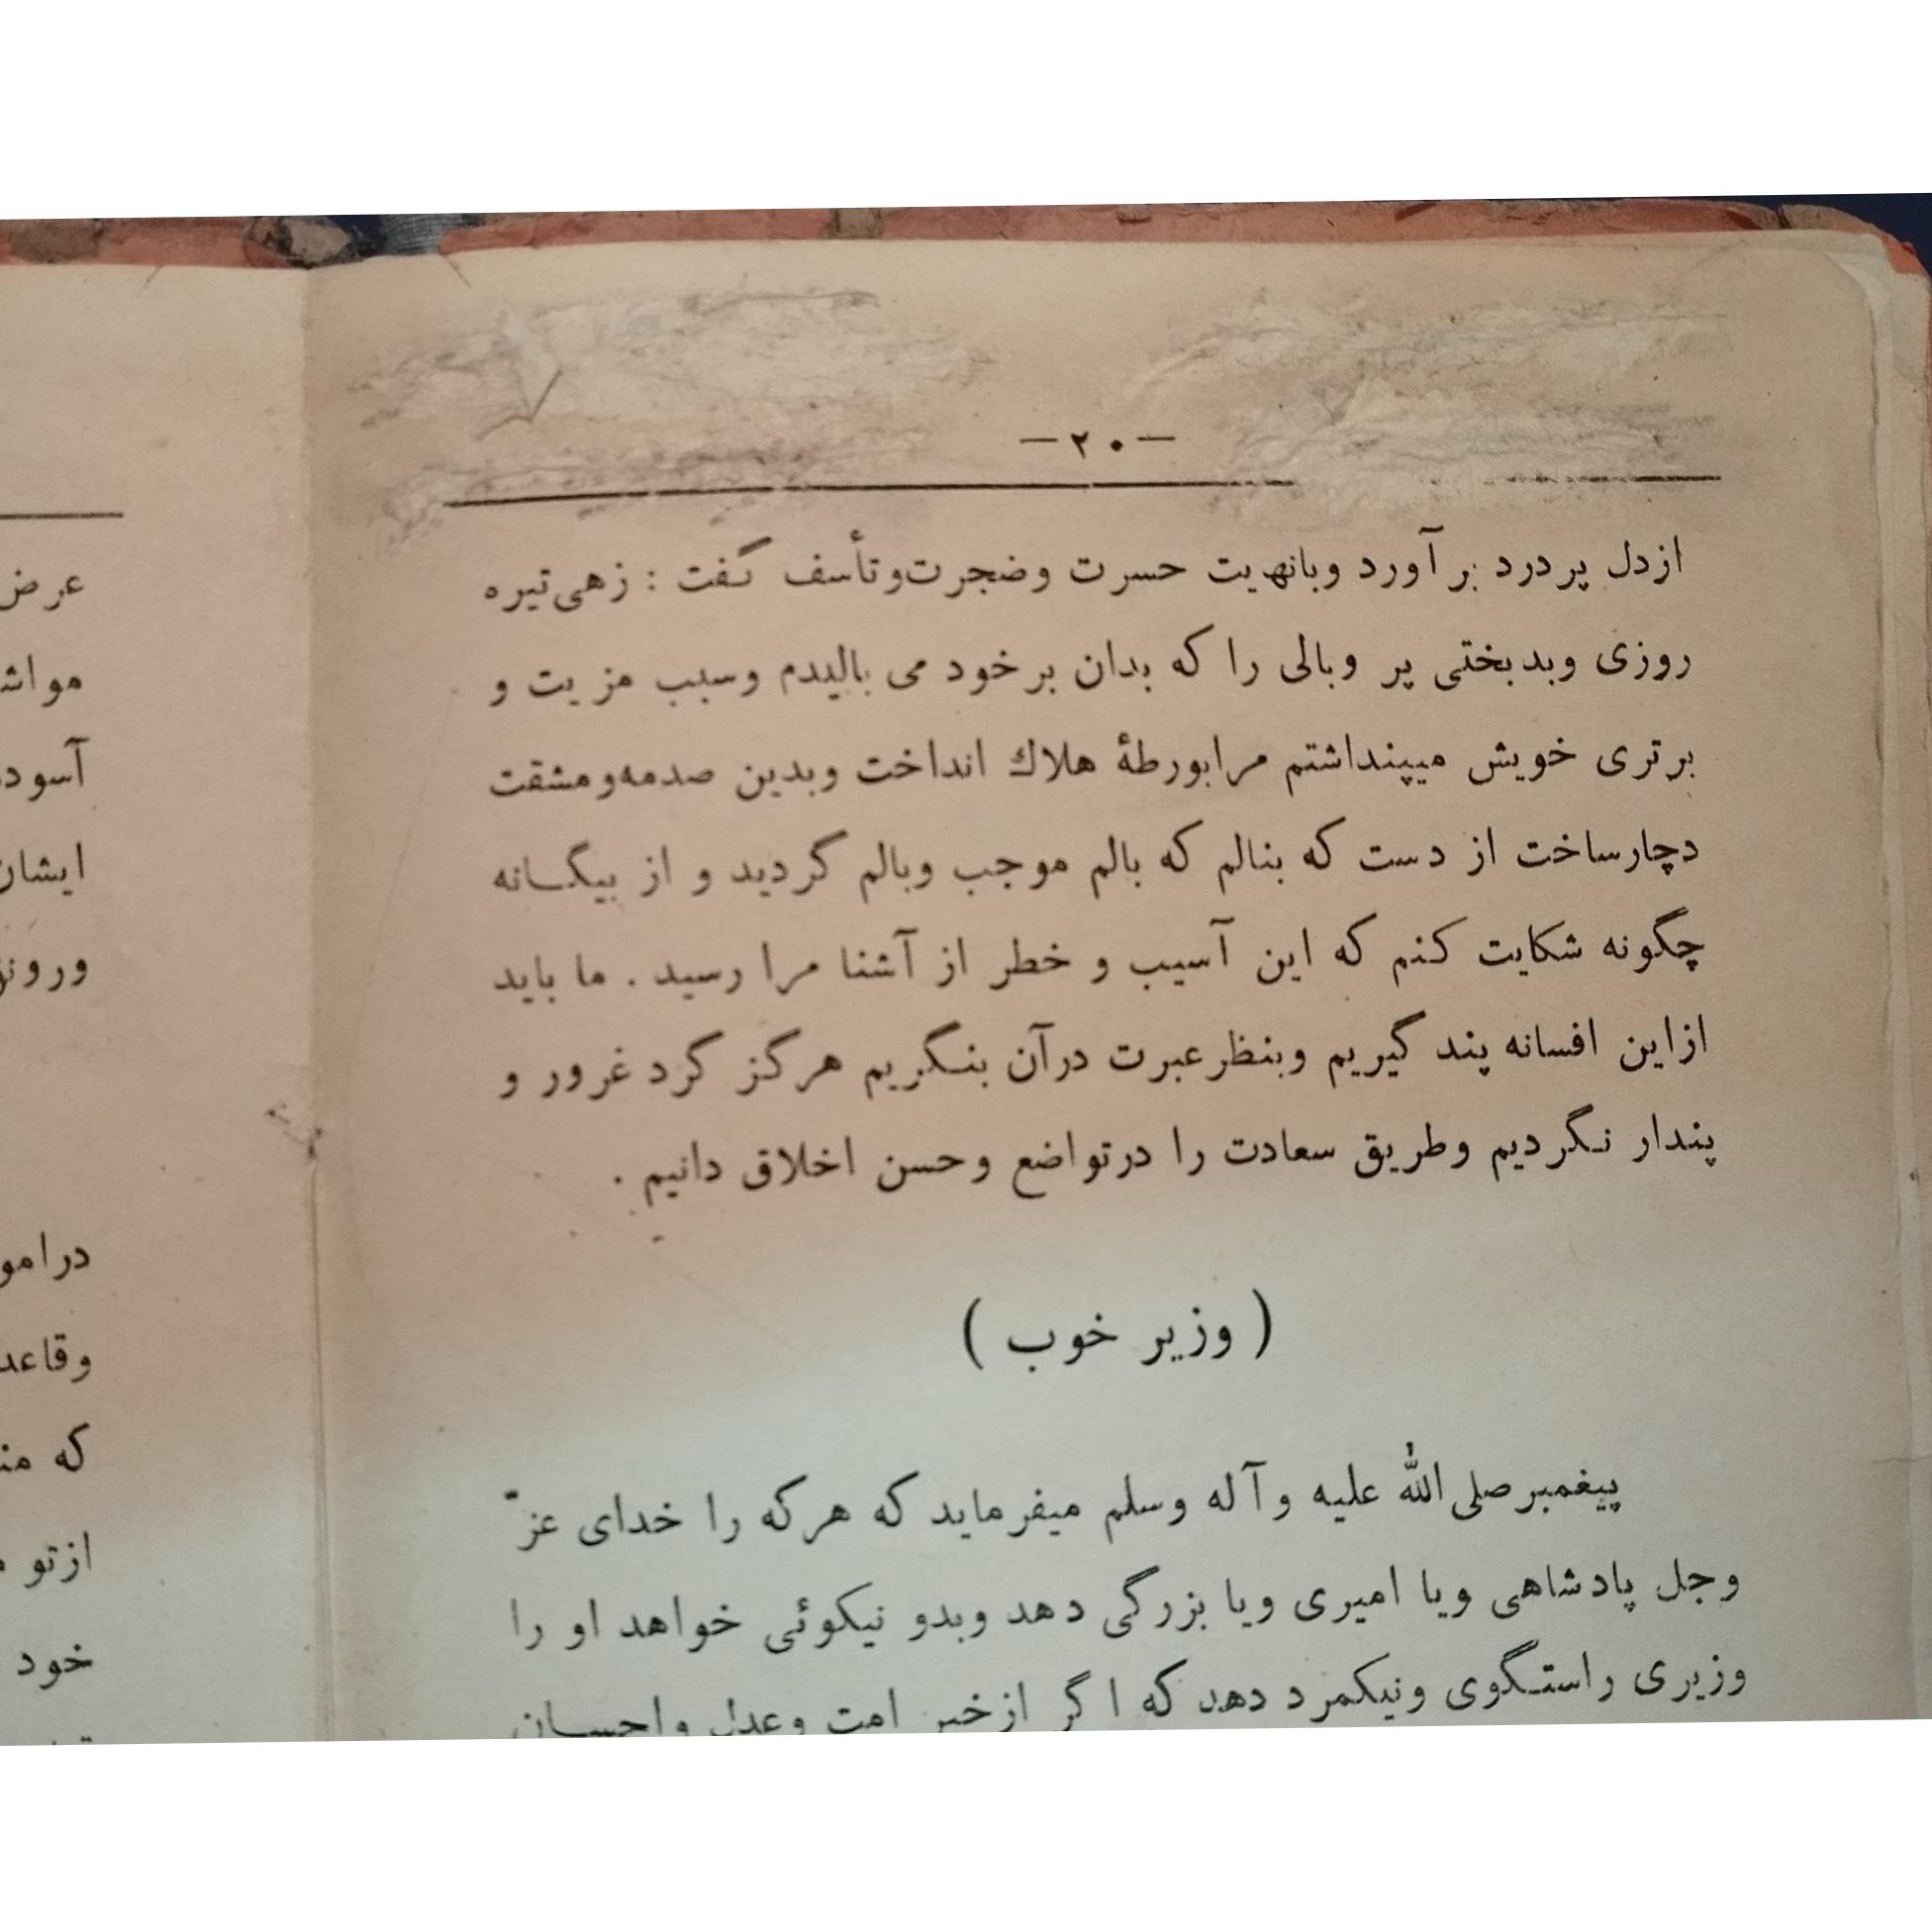 —۲۰—
ازدل پر درد بر آورد وبانهیت حسرت وضجرت‌وتأسف گفت : زهی تیره
روزی وبدبختی پر وبالی را که بدان بر خود می بالیدم وسبب مزیت و
برتری خویش میپنداشتم مرابورطهٔ هلاك انداخت وبدین صدمه‌ومشقت
دچارساخت از دست که بنالم که بالم موجب وبالم گردید و از بیگانه
چگونه شکایت کنم که این آسیب و خطر از آشنا مرا رسید . ما باید
ازاین افسانه پند گیریم وبنظر عبرت درآن بنگریم هرگز گرد غرور و
پندار نگردیم وطریق سعادت را درتواضع وحسن اخلاق دانیم .
( وزیر خوب )
پیغمبر صلی الله علیه وآله وسلم میفرماید که هرکه را خدای عزّ
وجل پادشاهی ویا امیری ویا بزرگی دهد وبدو نیکوئی خواهد او را
وزیری راستگوی ونیکمرد دهد که اگر ازخیر امت وعدل واحسان
عرض
آسود
ایشان
درامو
وقاعد
که
ازتو
خود